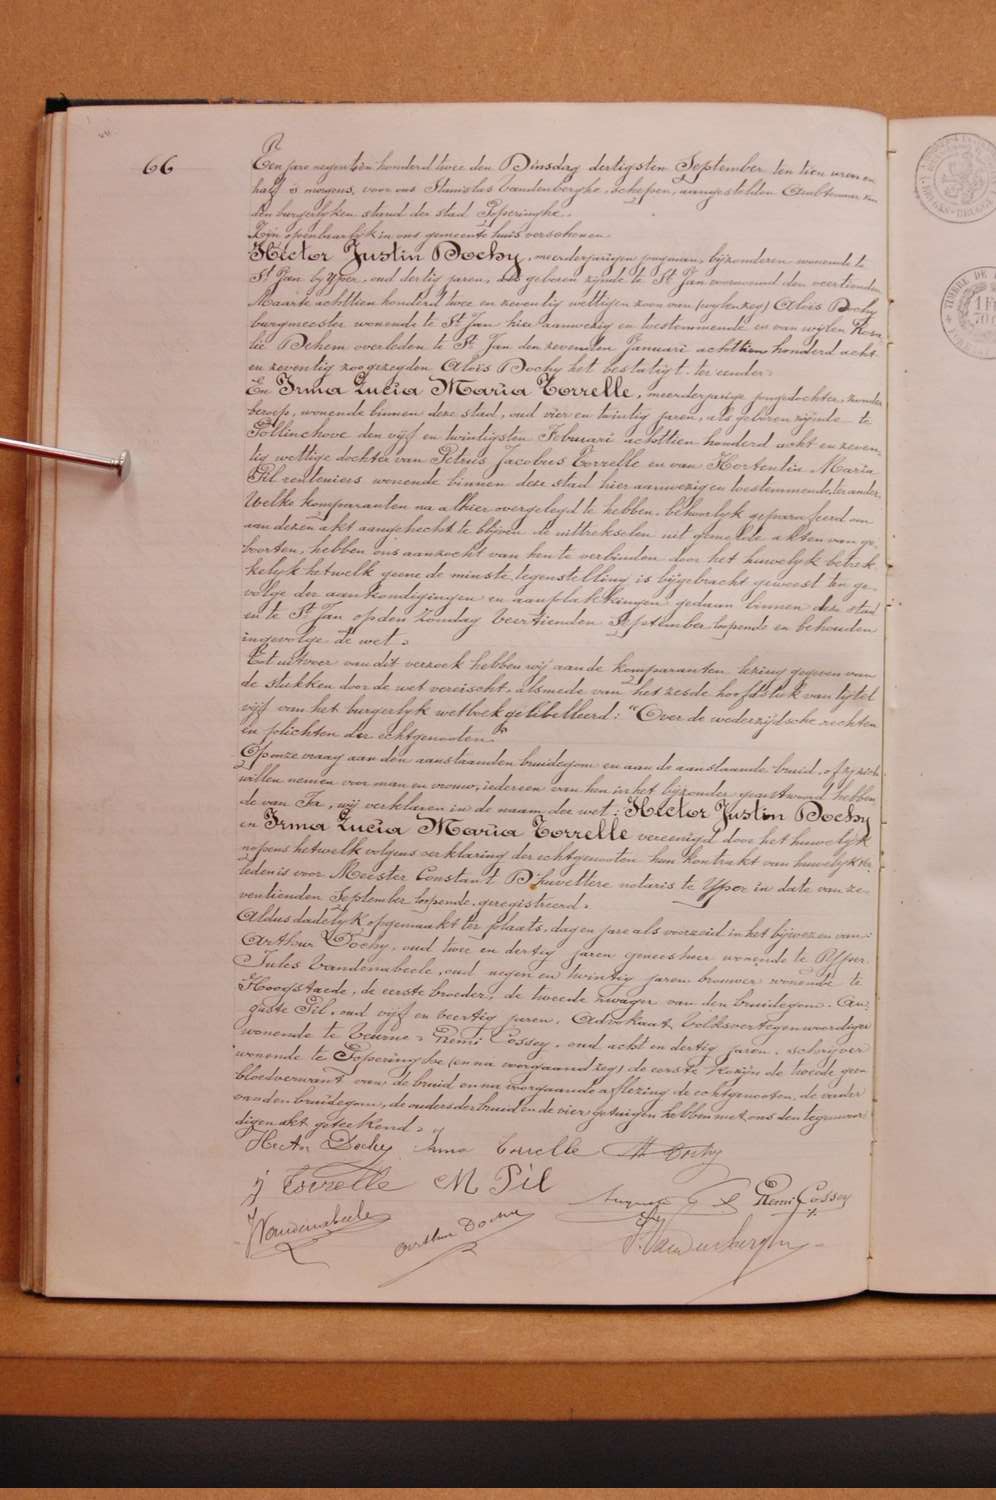 66
Ten jare negentien honderd twee den Dinsdag dertigsten September ten tien uren en
half 's morgens, voor ons Stanislas Vandenberghe, schepen, aangestelden Ambtenaar van
den burgerlyken stand der stad Poperinghe.
Zijn openbaarlyk in ons gemeente huis verschenen
Hector Justin Dochy, meerderjarigen jongman, byzonderen wonende te
St Jan by Yper, oud dertig jaren, als geboren zijnde te St Jan voornoemd den veertienden
Maarte achttien honderd twee en zeventig wettigen zoon van (wylen zeg) Aloïs Dochy
burgmeester wonende te St Jan hier aanwezig en toestemmende en van wijlen Rosa-
lie Dehem overleden te St Jan den zevenden Januari achttien honderd acht
en zeventig zoo gezegden Aloïs Dochy het bestatigt ter eender.
En Irma Lucia Maria Torrelle, meerderjarige jongedochter, zonder
beroep, wonende binnen deze stad, oud vier en twintig jaren, als geboren zijnde te
Pollinchove den vijf en twintigsten Februari achttien honderd acht en zeven-
tig wettige dochter van Petrus Jacobus Torrelle en van Hortentia Maria
Pil renteniers wonende binnen deze stad hier aanwezig en toestemmende ter ander.
Welke komparanten na alhier overgelegd te hebben, behoorlyk geparafeerd om
aan dezen akt aangehecht te blijven de uittrekselen uit gemelde akten van ge-
boorten, hebben ons aanzocht van hen te verbinden door het huwelyk betrek-
kelyk hetwelk geene de minste tegenstelling is bijgebracht geweest ten ge-
volge der aankondigingen en aanplakkingen gedaan binnen deze stad
en te St Jan op den Zondag veertienden September loopende en behouden
ingevolge de wet.
Tot uitvoer van dit verzoek hebben wij aan de komparanten lezing gegeven van
de stukken door de wet vereischt, alsmede van het zesde hoofdstuk van tytel
vijf van het burgerlyk wetboek gelibelleerd: "Over de wederzijdsche rechten
en plichten der echtgenooten"
Op onze vraag aan den aanstaanden bruidegom en aan de aanstaande bruid, of zy zich
willen nemen voor man en vrouw, iedereen van hen in het bijzonder geantwoord hebben-
de van Ja, wij verklaren in de naam der wet: Hector Justin Dochy
en Irma Lucia Maria Torrelle vereenigd door het huwelyk
nopens hetwelk volgens verklaring der echtgenooten hun kontrakt van huwelyk ver-
leden is voor Meester Constant D'huvettere notaris te Yper in date van ze-
ventienden September loopende, geregistreerd.
Aldus dadelyk opgemaakt ter plaats, dag en jare als voorzeid in het bijwezen van:
Arthur Dochy, oud twee en dertig jaren geneesheer wonende te Yper
Jules Vandenabeele, oud negen en twintig jaren brouwer wonende te
Hoogstaede, de eerste broeder, de tweede zwager van den bruidegom. Au-
guste Pil, oud vijf en veertig jaren, Advokaat, Volksvertegenwoordiger
wonende te Veurne, Remi Cossey, oud acht en dertig jaren, schrijver
wonende te Poperinghe (en na voorgaand zeg) de eerste kozijn de tweede geen
bloedverwant van de bruid en na voorgaande aflezing de echtgenooten, de vader
van den bruidegom, de ouders der bruid en de vier getuigen hebben met ons den tegenwoor-
digen akt geteekend.
Hector Dochy Irma Torrelle Als Dochy
J Torrelle M Pil
Auguste Pil Remi Cossey
J Vandenabeele Arthur Dochy
S. Vandenberghe